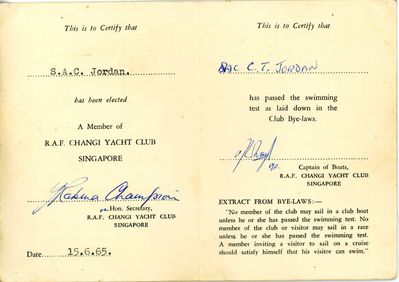 This is to Certify that
S.A.C. Jordan.
has been elected
A Member of
R.A.F. CHANGI YACHT CLUB
SINGAPORE
Hon. Secretary,
R.A.F. CHANGI YACHT CLUB
SINGAPORE
Date 15.6.65.
This is to Certify that
SAC C. T. JORDAN
has passed the swimming
test as laid down in the
Club Bye-laws.
Captain of Boats,
R.A.F. CHANGI YACHT CLUB
SINGAPORE
EXTRACT FROM BYE-LAWS:—
"No member of the club may sail in a club boat
unless he or she has passed the swimming test. No
member of the club or visitor may sail in a race
unless he or she has passed the swimming test.
A member inviting a visitor to sail on a cruise
should satisfy himself that his visitor can swim."